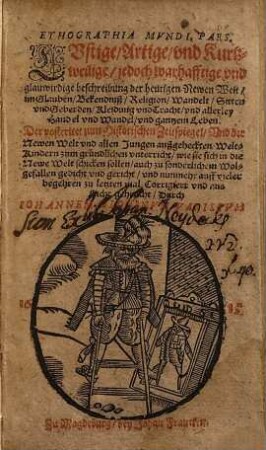 ETHOGRAPHIA MVNDI, PARS.
LVstige/Artige/vnd Kurtz-
weilige/jedoch warhafftige vnd
glaubwirdige beschreibung der heutigen Newen Welt/
im Glauben/Bekendnuß/Religion/Wandelt/Sitten
vnd Geberden/Kleidung vnd Tracht/vnd allerley
Handel vnd Wandel/vnd gantzem Leben.
Der posteritet zum Historischen Zeitspiegel/Vnd der
Newen Welt vnd allen Jungen außgeheckten Welt-
Kindern zum gründlichen vnterricht/wie sie sich in die
Newe Welt schicken sollen/auch zu sonderlichem Wol-
gefallen gedicht vnd gericht/vnd nunmehr auff vieler
begehren zu letzten mal Corrigiert vnd
Durch
IOHANNEM
Zu Magdeburg/bey Johan Francken.